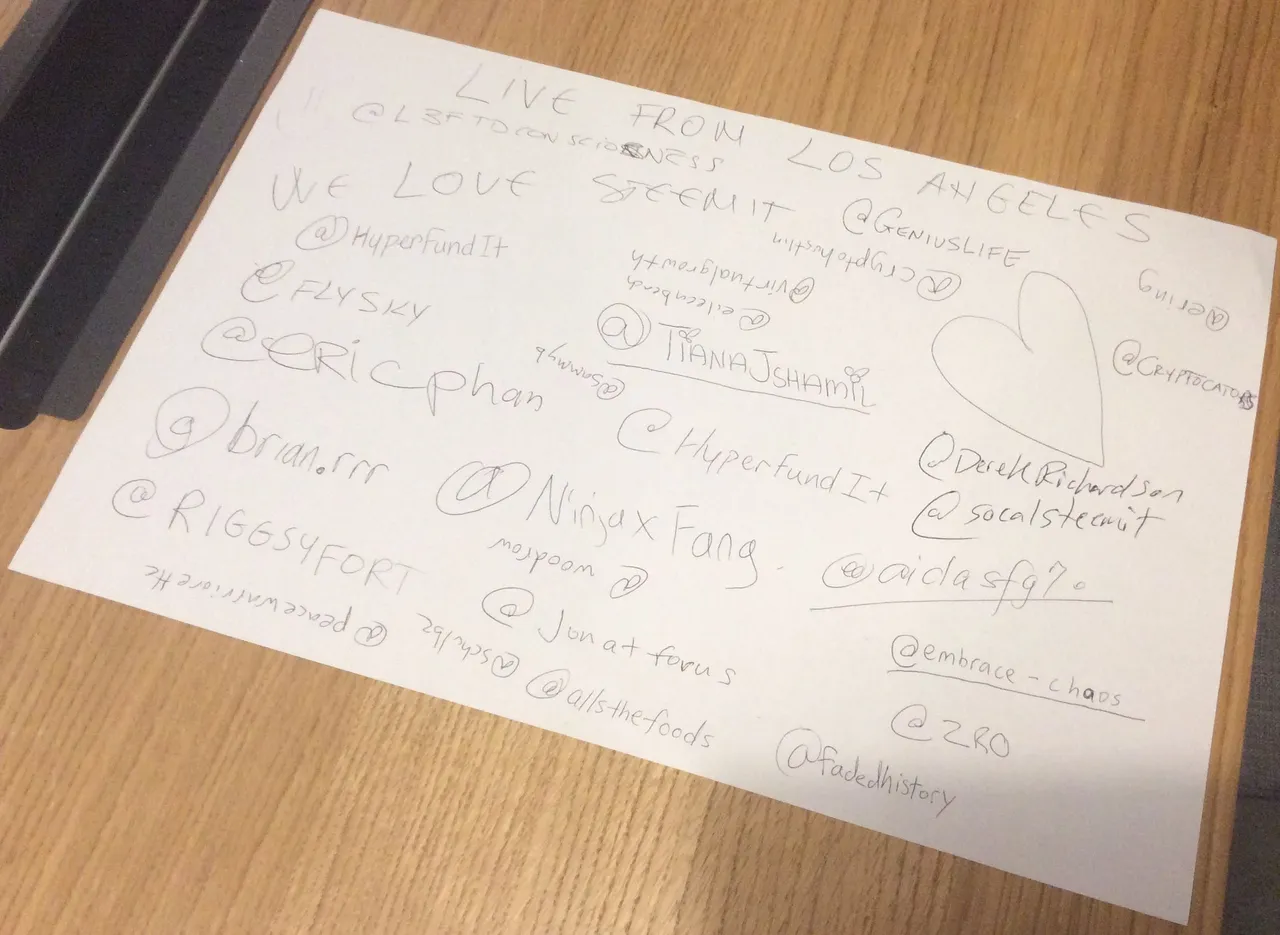 LIVE FROM LOS ANGELES
@L3FTOCONSCIOSNESS
WE LOVE STEEMIT
@GENIUSLIFE
@cryptohustlin
@HyperfundIt
@virtualgrowth
@ering
@FLYSKY
@eileenbeach
@TIANAJSHAMIL
@CRYPTOCATORS
@ericphan
@sammyb
@HyperfundIt
@DerekRichardson
@brian.rrr
@NinjaxFang.
@socalsteemit
@RIGGSYFORT
@woodrow
@aidasfg7.
@peacewarriorette
@schulbz
@Jonatforus
@embrace-chaos
@allsthefoods
@ZRO
@fadedhistory